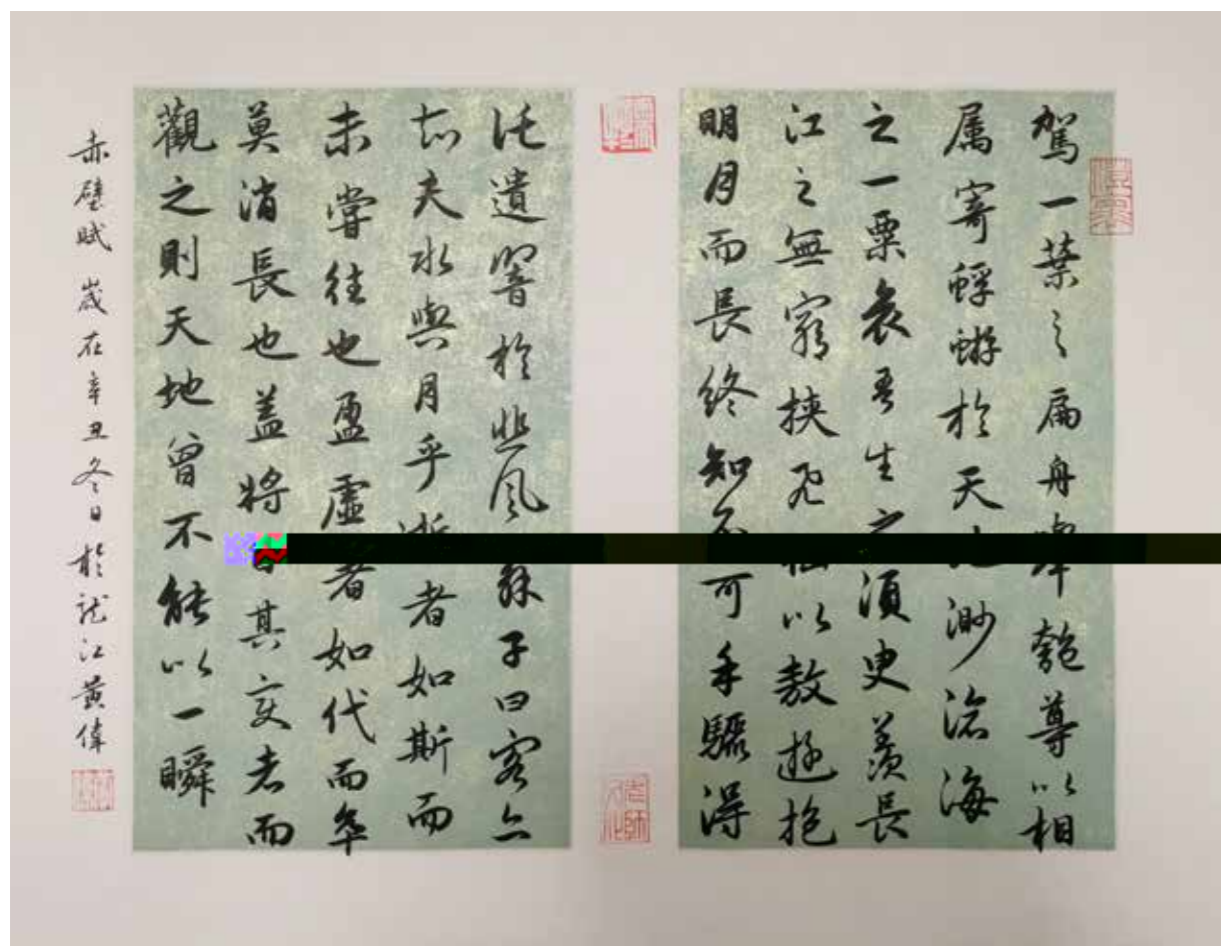 駕一葉之扁舟舉匏尊以相
属寄蜉蝣於天地渺滄海
之一粟哀吾生之須臾羨長
江之無窮挾飛仙以敖遊抱
明月而長終知不可乎驟得
託遺響於悲風蘇子曰客亦
知夫水與月乎逝者如斯而
未嘗往也盈虛者如代而卒
莫消長也蓋將自其变者而
觀之則天地曾不能以一瞬
赤壁賦 歲在辛丑冬日於龙江黄偉